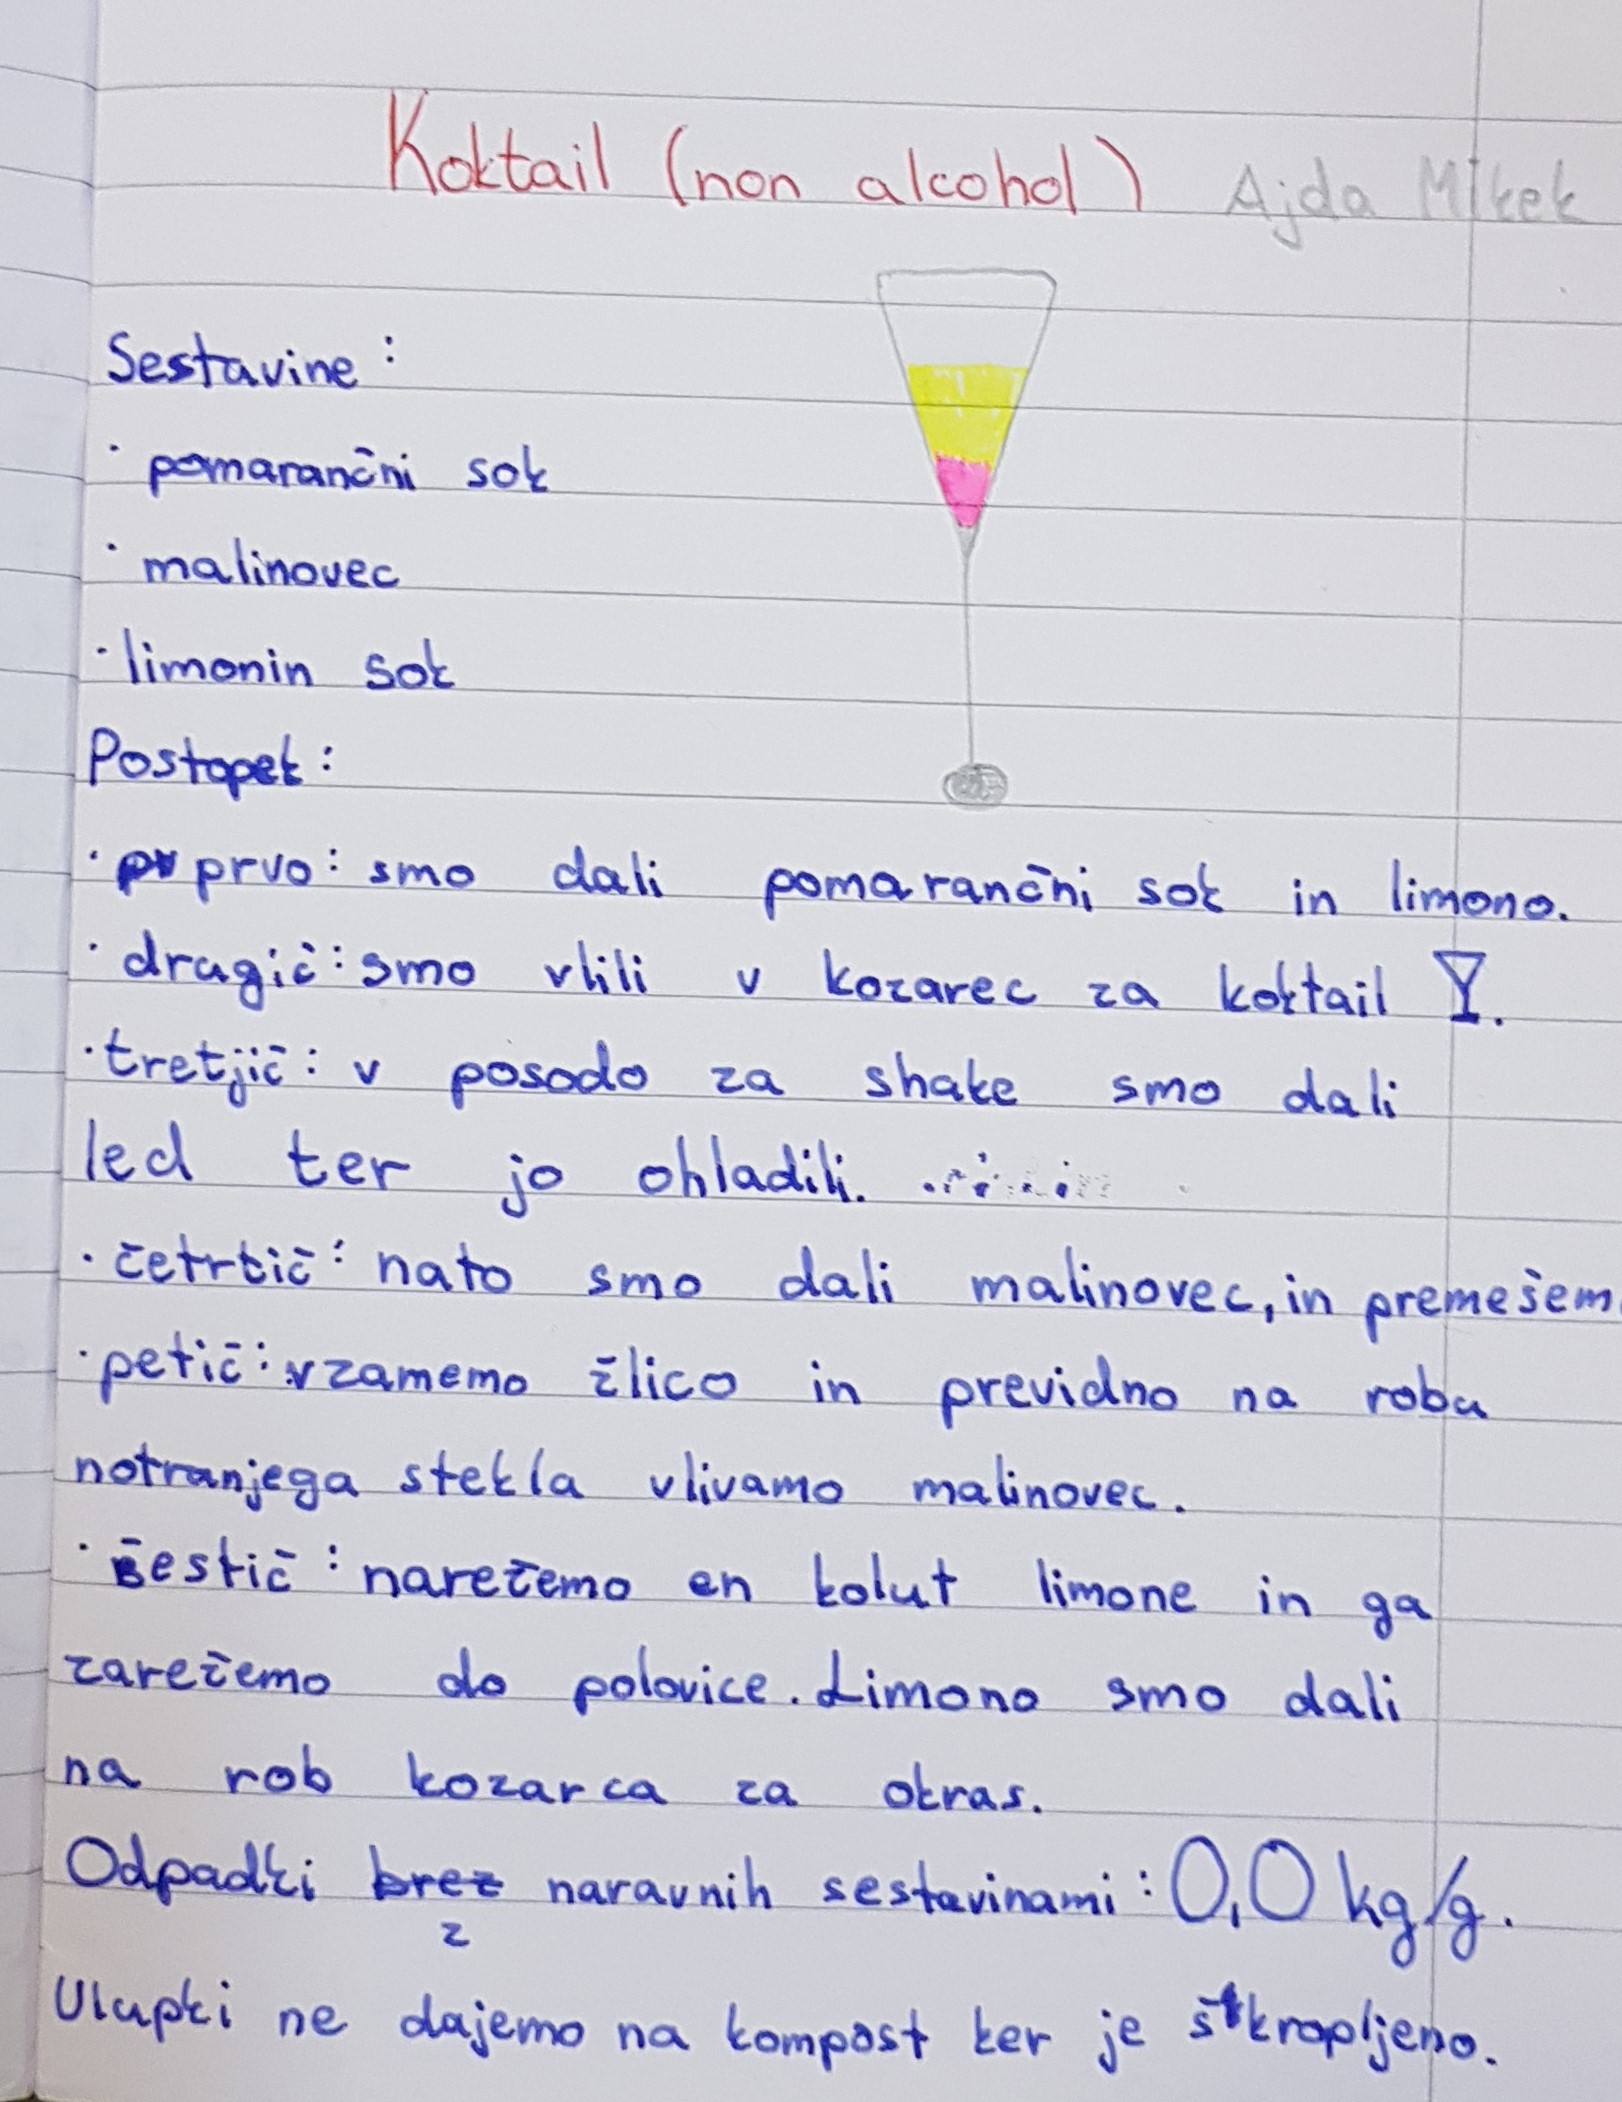 Koktail (non alcohol) Ajda Mikek
Sestavine:
· pomarančni sok
· malinovec
· limonin sok
Postopek:
· prvo: smo dali pomarančni sok in limono.
· drugič: smo vlili v kozarec za koktail
· tretjič: v posodo za shake smo dali
led ter jo ohladili.
· četrtič: nato smo dali malinovec, in premešem
· petič: vzamemo žlico in previdno na robu
notranjega stekla vlivamo malinovec.
· šestič: narežemo en kolut limone in ga
zarežemo do polovice. Limono smo dali
na rob kozarca za okras.
Odpadki brez naravnih sestavinami: 0,0 kg/g.
z
Ulupki ne dajemo na kompost ker je škropljeno.